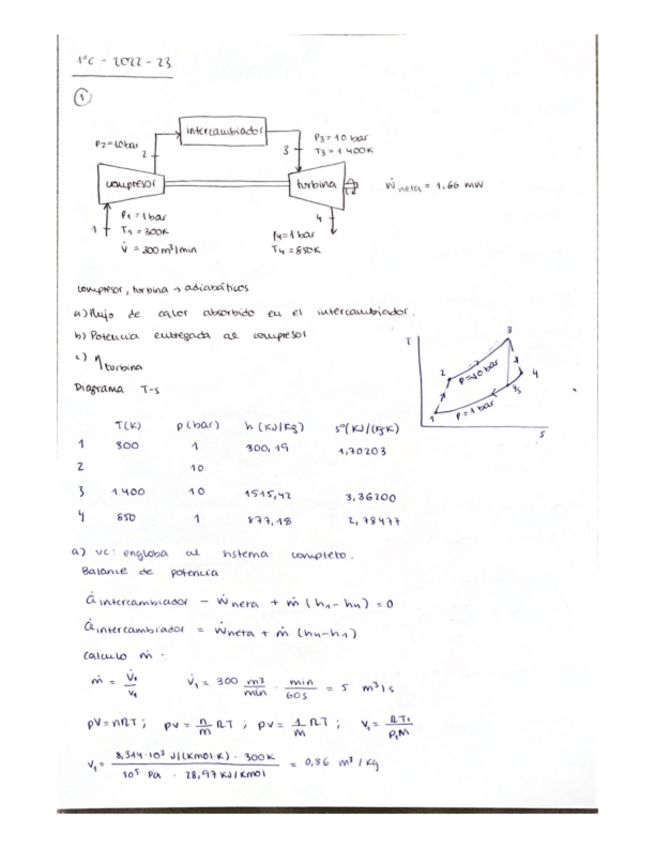 1ºC - 2022 - 23
①
intercambiador
P2=10bar
2
3
P3 = 10 bar
T3 = 1.400K
compresor
turbina
Ẇneta = 1,66 MW
1
P1 = 1 bar
T1 = 300K
V̇ = 300 m³/min
4
P4=1 bar
T4 = 850K
compresor, turbina → adiabáticos
a) Flujo de calor absorbido en el intercambiador.
b) Potencia entregada al compresor
c) η turbina
Diagrama T-s
T
3
2
P=10 bar
4
4s
1
P=1 bar
S
T(K) p(bar) h (KJ/Kg) sº(KJ/(KgK)
1 300 1 300,19 1,70203
2 10
3 1.400 10 1515,42 3,36200
4 850 1 877,18 2,78477
a) VC: engloba al sistema completo.
Balance de potencia
Q̇intercambiador - Ẇneta + ṁ (h1 - h4) = 0
Q̇intercambiador = Ẇneta + ṁ (h4-h1)
Calculo ṁ :
ṁ = V̇1/v1 V̇1 = 300 m³/min · min/60s = 5 m³/s
pV = nRT ; pV = n/m RT ; pV = 1/M RT ; V1 = RT1/P1M
V1 = 8,314·10³ J/(Kmol·K) · 300K / 10⁵ Pa · 28,97 KJ/Kmol = 0,86 m³/Kg